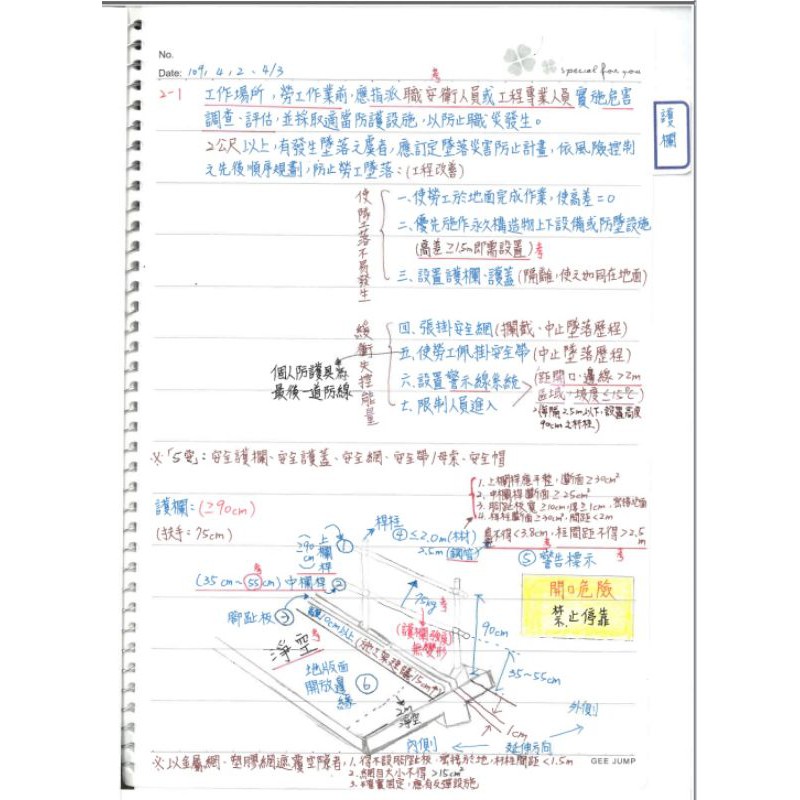 No.
Date: 109. 4. 2 ~ 4/3
special for you
護欄
2-1 工作場所，勞工作業前，應指派職安衛人員或工程專業人員實施危害
調查、評估，並採取適當防護設施，以防止職災發生。
2公尺以上，有發生墜落之虞者，應訂定墜落災害防止計畫，依風險控制
之先後順序規劃，防止勞工墜落：(工程改善)
使墜落不易發生
一、使勞工於地面完成作業，使高差=0
二、優先施作永久構造物上下設備或防墜設施
(高差≥1.5m即需設置) 考
三、設置護欄、護蓋(隔離，使之如同在地面)
緩衝失控能量
四、張掛安全網(攔截、中止墜落歷程)
五、使勞工佩掛安全帶(中止墜落歷程)
個人防護具為
最後一道防線
六、設置警示線系統
七、限制人員進入
距開口、邊線>2m
區域、坡度≤15°
90cm之杆柱
※「5宝」：安全護欄、安全護蓋、安全網、安全帶/母索、安全帽
護欄：(≥90cm)
(扶手：75cm)
1. 上欄桿應平整，斷面≥30cm²
2. 中欄桿斷面≥25cm²
3. 腳趾板寬≥10cm，厚≥1cm，密接地面
4. 杆柱斷面≥30cm²，間距<2m
不得<3.8cm，柱間距不得>2.5m
桿柱
④ ≤2.0m(木材)
2.5m(鋼管)
⑤ 警告標示
開口危險
禁止停靠
≥90cm 上欄桿 ①
(35cm~55cm)中欄桿 ②
腳趾板 ③
75kg
(護欄強度)
無變形
90cm
35~55cm
1cm
淨空
地版面
開放邊
緣 ⑥
2m
淨空
內側
延伸方向
外側
※以金屬網、塑膠網遮覆空隙者，1. 得不設腳趾板，密接於地，杆柱間距<1.5m
2. 網目大小不得>15cm²
GEE JUMP